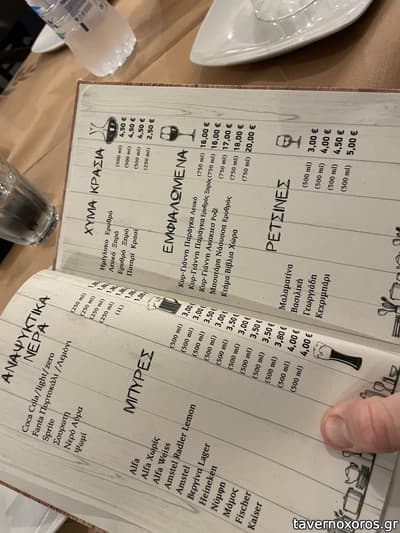 ΑΝΑΨΥΚΤΙΚΑ
ΝΕΡΑ
Coca Cola/light/zero (250 ml)
Fanta Πορτοκάλι /Λεμόνι (250 ml)
Sprite (250 ml)
Σουρωτή (250 ml)
Νερό Αύρα (1L)
Ψωμί
ΜΠΥΡΕΣ
Alfa (500 ml)
Alfa Χωρίς (500 ml)
Alfa Weiss (500 ml)
Amstel Radler Lemon (500 ml)
Amstel (500 ml)
Βεργίνα Lager (500 ml)
Heineken (500 ml)
Νύμφη (500 ml)
Μάμος (500 ml) 3,80 €
Fischer (500 ml) 4,00 €
Kaiser (500 ml) 4,00 €
ΧΥΜΑ ΚΡΑΣΙΑ
Ημίγλυκο Ερυθρό (500 ml) 4,50 €
Λευκό Ξηρό (500 ml) 4,50 €
Ερυθρό Ξηρό (500 ml) 4,50 €
Ποτήρι Κρασί (250 ml) 2,50 €
ΕΜΦΙΑΛΩΜΕΝΑ
Κυρ-Γιάννη Παράγκα Λευκό (750 ml) 16,00 €
Κυρ-Γιάννη Παράγκα Ερυθρός Ξηρός (750 ml) 16,00 €
Κυρ-Γιάννη Ακακίες Ροζέ (750 ml) 17,00 €
Μπουτάρη Νάουσσα Ερυθρός (750 ml) 18,00 €
Κτήμα Βιβλία Χώρα (750 ml) 20,00 €
ΡΕΤΣΙΝΕΣ
Μαλαματίνα (500 ml) 3,00 €
Βασιλική (500 ml) 4,00 €
Γεωργιάδη (500 ml) 4,50 €
Κεχριμπάρι (500 ml) 5,00 €
tavernoxoros.gr